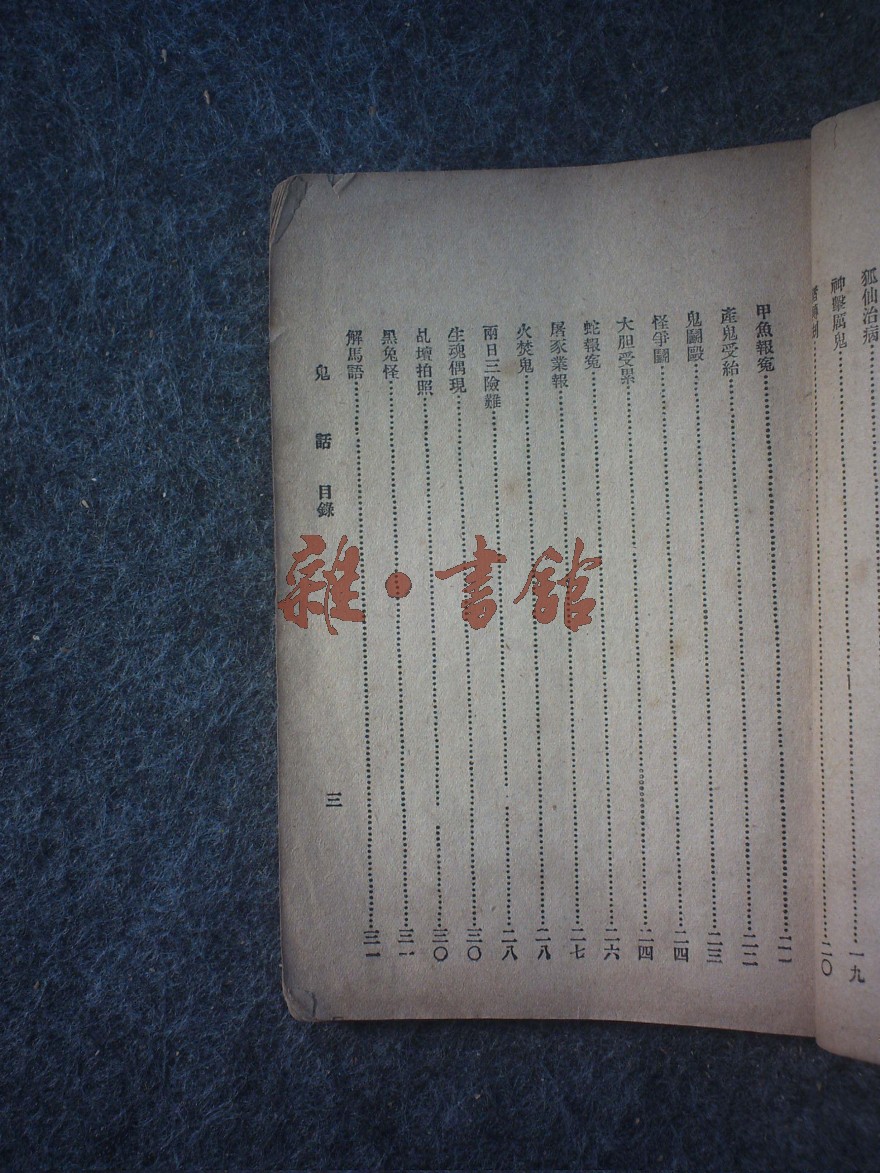 狐仙治病……一九
神擊厲鬼……二〇
甲魚報寃……二一
產鬼受紿……二二
鬼鬭毆……二三
怪爭鬭……二四
大胆受累……二四
蛇報寃……二六
屠豕業報……二七
火焚鬼……二八
兩日三險難……二八
生魂偶現……三〇
乩壇拍照……三〇
黑兔怪……三一
解馬語……三一
鬼話目錄
三
雜·書館